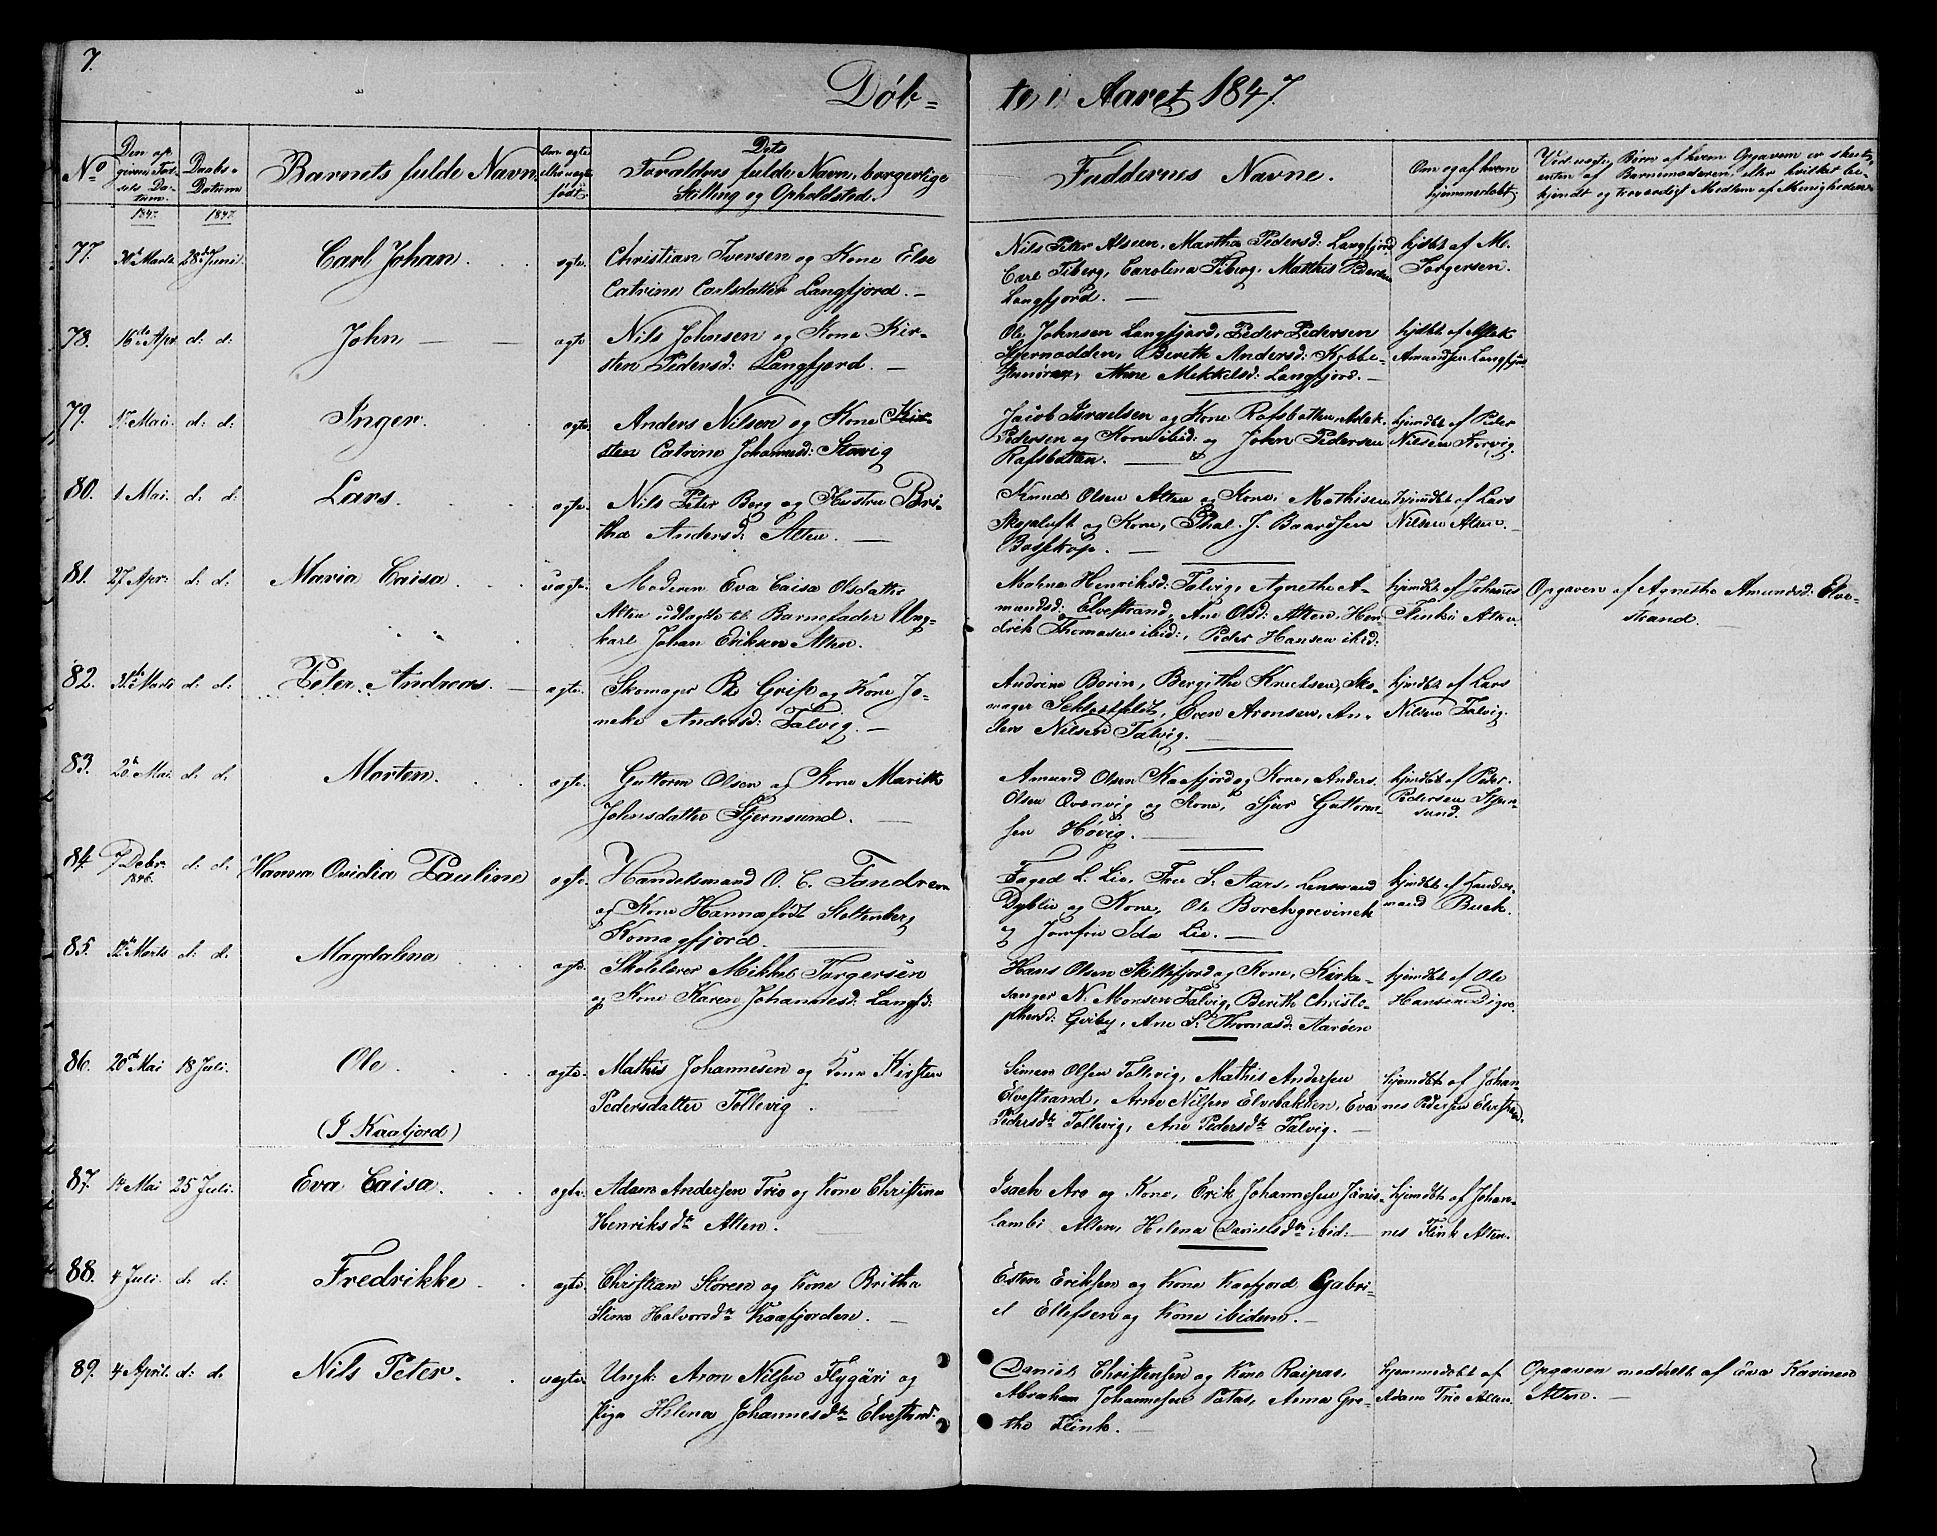 7.
Døb-
te i Aaret 1847.
No
Den op-
given Fød-
sels Da-
tum.
Daabs-
Datum
Barnets fulde Navn
Om ægte
eller uægte
født.
Dets
Forældres fulde Navn, borgerlige
Stilling og Opholdsted.
Faddernes Navne.
Om og af hvem
hjemmedøbt
Ved uægte Børn af hvem Opgaven er skeet,
enten af Barnemoderen, eller hvilket be-
kjendt og troværdigt Medlem af Menigheden.
1847. 1847.
77. Marts 28de Juni. Carl Johan. ægte. Christian Iversen og Kone Else
Catrine Carlsdatter Langfjord. —
Nils Peter Alseen, Martha Pedersd: Langfjord
Carl Fiberg, Carolina Fiberg, Mathis
Langfjord. —
hjdbt af M.
Torgersen.
78. 16de Apr. d: d: John — — ægte Nils Johnsen og Kone Kir-
sten Pedersd: Langfjord. —
Ole Johnsen Langfjord, Peder Pedersen
Stjernodden, Bereth Andersd:
Ane Mikkelsd: Langfjord. —
hjdbt af Aslak
Amundsen Langfjord
79. 17 Mai. d: d: Inger. ægte. Anders Nilsen og Kone Kir-
sten Catrine Johannesd: Storvig
Jacob Israelsen og Kone Rafsbotten, Aslak
Pedersen og Kone ibid: og John Pedersen
Rafsbotten. —
hjemdbt af Peder
Nilsen Storvig.
80. 1 Mai. d: d: Lars. ægte. Nils Peter Berg og Hustru Bri-
tha Andersd: Alten. —
Knud Olsen Alten og Kone, Mathisen
Skoglust og Kone, Thal. J. Baardsen
Bossekop. —
hjemdbt af Lars
Nilsen Alten. —
81. 27 Apr: d: d: Maria Caisa. uægte. Moderen Eva Caisa Olsdatter
Alten udlagte til Barnefader Ung-
karl Johan Eriksen Alten.
Malene Henriksd: Talvig, Agnethe A-
mundsd: Elvestrand, Ane Olsd: Alten, Hen-
drik Thomasen ibid:, Peder Hansen ibid:
hjemdbt af Johannes
Flinke Alten.
Opgaven af Agnethe Amundsd: Elve-
strand. —
82. Marts d: d: Peter Andreas. — ægte. Skomager Grip og Kone Jo-
neke Andersd: Talvig. —
Andrine Borin, Bergithe Knutsen, Sko-
mager Sehlestfelt, Oven Aronsen, An-
ders Nilsen Talvig. —
hjemdbt af Lars
Nilsen Talvig.
83. 20de Mai. d: d: Morten. ægte. Guttorm Olsen og Kone Marith
Johnsdatter Stjernsund. —
Amund Olsen Kaafjord og Kone, Anders
Olsen Qvænvig og Kone, Sjur Guttorm-
sen Høvig. —
hjemdbt af Peder
Pedersen Stjern-
sund.
84. 7 Debr.
1846. d: d: Hanna Ovidia Pauline ægte. Handelsmand O. C. Fandrem
og Kone Hanna født Stoltenberg
Komagfjord. —
Foged L. Lie, Fru S. Aars, Lensmand
Dyblie og Kone, Ole Borchgrevinck
og Jomfru Ida Lie. —
hjemdbt af Hander-
mand Buck.
85. 12te Marts d: d: Magdalina ægte. Skolelærer Mikkel Torgersen
og Kone Karen Johannesd: Langfd:
Hans Olsen Skillefjord og Kone, Kirke-
sanger N. Monsen Talvig, Berith Christo-
phersd: Qviby, Ane S. Thomasd: Aarøen
hjemdbt af Ole
Hansen Digre.
86. 20de Mai 18 Juli. Ole. ægte. Mathis Johannesen og Kone Kirsten
Pedersdatter Tollevig. —
(I Kaafjord)
Simen Olsen Tollevig, Mathis Andersen
Elvestrand, Arne Nilsen Elvebakken, Eva
Pedersdtr Tollevig, Ane Pedersdtr Talvig. —
hjemdbt af Johan-
nes Pedersen Elvestrand.
87. 14 Mai 25 Juli. Eva Caisa. ægte. Adam Andersen Trio og Kone Christina
Henriksdtr Alten. —
Isach Aro og Kone, Erik Johannesen Jänis-
lambi Alten, Helena Danielsdtr ibid: —
hjemdbt af Johan-
nes Flink Alten.
88. 4 Juli. d: d: Fredrikke. ægte. Christian Støren og Kone Britha
Stina Halvorsdtr Kaafjorden. —
Esten Eriksen og Kone Kaafjord Gabri-
el Ellefsen og Kone ibidem. —
89. 4 April. d: d: Nils Peter. uægte. Ungk: Aron Nilsen Flygäri og
Pige Helena Johannesdtr Elvestrand.
Daniel Christensen og Kone Raipas,
Abraham Johannesen Patas, Anna Gre-
the Flink. —
hjemmedøbt af
Adam Trio Alten.
Opgaven meddelt af Eva Karinen
Alten. —